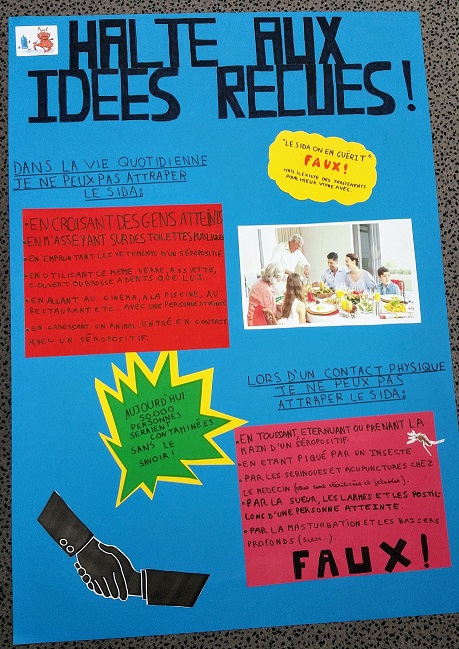 HALTE AUX
IDEES RECUES!
"LE SIDA ON EN GUÉRIT"
FAUX!
MAIS IL EXISTE DES TRAITEMENTS
POUR MIEUX VIVRE AVEC
DANS LA VIE QUOTIDIENNE
JE NE PEUX PAS ATTRAPER
LE SIDA:
• EN CROISANT DES GENS ATTEINTS
• EN M'ASSEYANT SUR DES TOILETTES PUBLIQUES
• EN EMPRUNTANT LES VÊTEMENTS D'UN SÉROPOSITIF
• EN UTILISANT LE MÊME VERRE, ASSIETTE,
COUVERT OU BROSSE A DENTS QUE LUI.
• EN ALLANT AU CINEMA, A LA PISCINE, AU
RESTAURANT ETC. AVEC UNE PERSONNE ATTEINTE
• EN CARESSANT UN ANIMAL ENTRÉ EN CONTACT
AVEC UN SÉROPOSITIF.
AUJOURD'HUI
50000
PERSONNES
SERAIENT
CONTAMINÉES
SANS LE
SAVOIR!
LORS D'UN CONTACT PHYSIQUE
JE NE PEUX PAS
ATTRAPER LE SIDA:
• EN TOUSSANT ETERNUANT OU PRENANT LA
MAIN D'UN SÉROPOSITIF.
• EN ETANT PIQUÉ PAR UN INSECTE
• PAR LES SERINGUES ET ACUPUNCTURES CHEZ
LE MEDECIN (elles sont stérilisées et jetables).
• PAR LA SUEUR, LES LARMES ET LES POSTIL-
LONS D'UNE PERSONNE ATTEINTE.
• PAR LA MASTURBATION ET LES BAISERS
PROFONDS
FAUX!